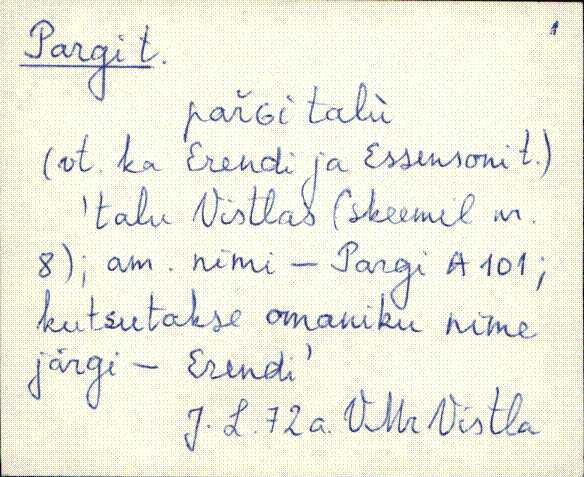 1
Pargi t.
pařGì talù
(vt. ka Erendi ja Essensoni t.)
'talu Vistlas (skeemil nr.
8); am. nimi – Pargi A 101;
kutsutakse omaniku nime
järgi – Erendi'
J. L. 72 a. VMr Vistla